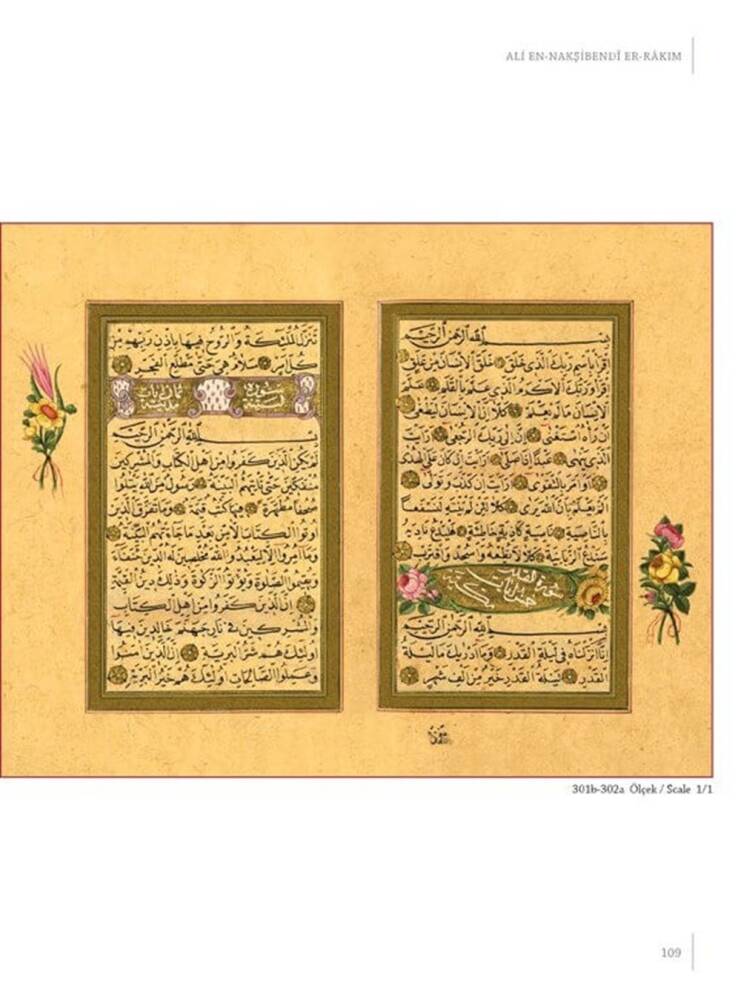 ALİ EN-NAKŞİBENDÎ ER-RÂKIM
بسم الله الرحمن الرحيم
اقرأ باسم ربك الذي خلق خلق الانسان من علق
اقرأ وربك الاكرم الذي علم بالقلم علم
الانسان ما لم يعلم كلا ان الانسان ليطغى
ان راه استغنى ان الى ربك الرجعى رايت
الذي ينهى عبدا اذا صلى رايت ان كان على الهدى
او امر بالتقوى رايت ان كذب وتولى
الم يعلم بان الله يرى كلا لئن لم ينته لنسفعا
بالناصية ناصية كاذبة خاطئة فليدع ناديه
سندع الزبانية كلا لا تطعه واسجد واقترب
سورة القدر
خمس ايات
مكية
بسم الله الرحمن الرحيم
انا انزلناه في ليلة القدر وما ادريك ما ليلة
القدر ليلة القدر خير من الف شهر
تنزل الملئكة والروح فيها باذن ربهم من
كل امر سلام هي حتى مطلع الفجر
سورة
ثمان ايات
مدنية
بسم الله الرحمن الرحيم
لم يكن الذين كفروا من اهل الكتاب والمشركين
منفكين حتى تاتيهم البينة رسول من الله يتلوا
صحفا مطهرة فيها كتب قيمة وما تفرق الذين
اوتوا الكتاب الا من بعد ما جاءتهم البينة
وما امروا الا ليعبدوا الله مخلصين له الدين حنفاء
ويقيموا الصلوة ويؤتوا الزكوة وذلك دين القيمة
ان الذين كفروا من اهل الكتاب
والمشركين في نار جهنم خالدين فيها
اولئك هم شر البرية ان الذين امنوا
وعملوا الصالحات اولئك هم خير البرية
301b-302a Ölçek / Scale 1/1
109